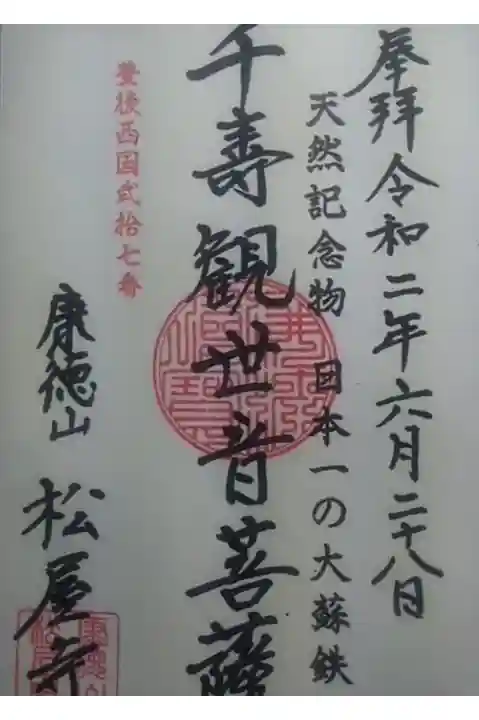 奉拝 令和二年六月二十八日
天然記念物 日本一の大蘇鉄
千壽観世音菩薩
豊後西国弐拾七番
康徳山 松屋寺